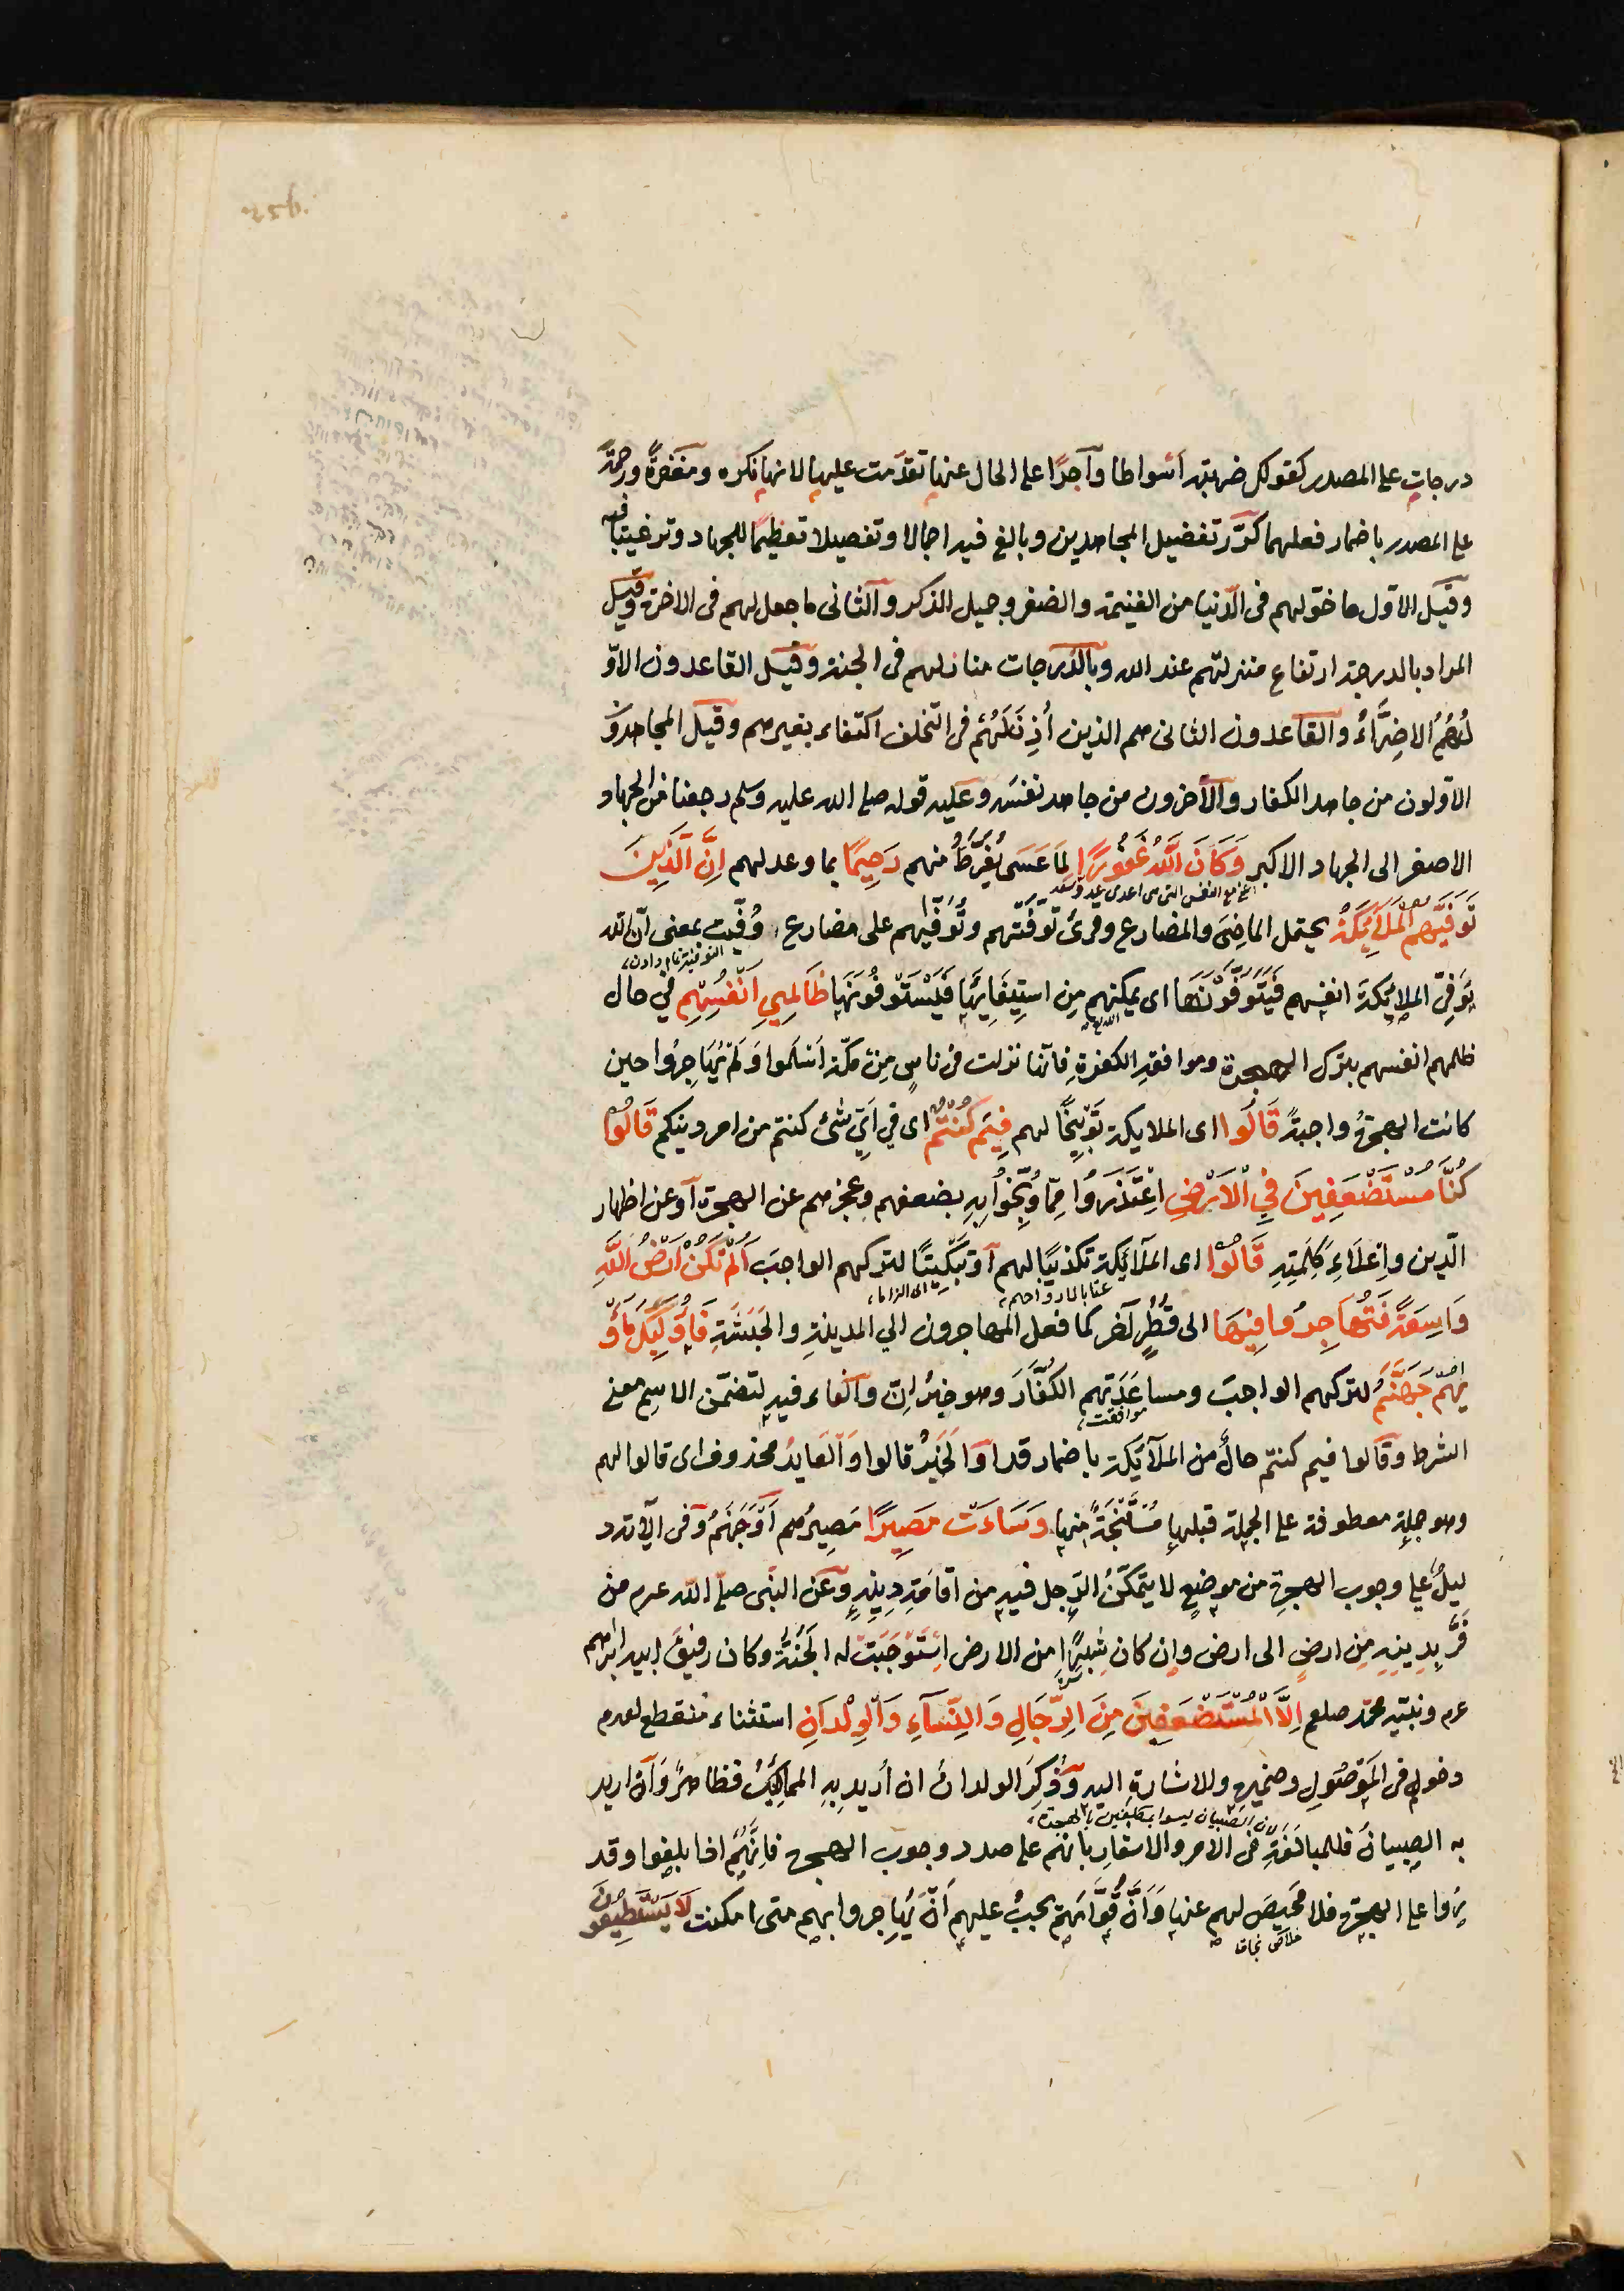 درجات على المصدر كقولك ضربته اسواطا وآجرًا على الحال عنها تقدّمت عليها لانها نكره ومغفرةً ورحمةً
على المصدر باضمار فعلهما كرّر تفضيل المجاهدين وبالغ فيه اجمالا وتفصيلا تعظيمًا للجهاد وترغيبًا فيه
وقيل الاوّل ما خوّلهم فى الدّنيا من الغنيمة والظفر وجميل الذكر والثانى ما جعل لهم فى الاخرة وقيل
المراد بالدرجة ارتفاع منزلتهم عند الله وبالدّرجات منازلهم فى الجنة وقيل القاعدون الاوّ
لُ هُمُ الاضِرَّاءُ والقاعدون الثانى هم الذين أُذِنَ لَهُمْ فى التخلف اكتفاء بغيرهم وقيل المجاهدوَن
الاوّلون من جاهد الكفار والآخرون من جاهد نفسَه وعليه قوله صلى الله عليه وسلم رجعنا من الجهاد
الاصغر الى الجهاد الاكبر وَكَانَ اللّٰهُ غَفُورًا لِمَا عَسَى يُفَرِّطُ منهم رَحِيمًا بما وعد لهم اِنَّ الَّذِينَ
تَوَفّٰيهُمُ الْمَلٰٓئِكَةُ يحتمل الماضِىَ والمضارع وقرئ تَوَفَّتهم وتُوَفّٰيهم على مضارع وُفِّيَت بمعنى انّ الله
التوفية تمام دادن
يُوَفِّى الملائكةَ انفسهم فَيَتَوَفَّوْنَهَا اى يمكنهم مِن استِيفَائِهَا فَيَسْتَوْفُونَهَا ظَالِمِى اَنْفُسِهِمْ فى حال
ظلمهم انفسهم بترك الهجرة وموافقةِ الكفرةِ فانّها نزلت فى ناسٍ مِنْ مكّة اَسْلَموا وَلَمْ يُهَاجِرُوا حين
كانت الهجرةُ واجبةً قَالُوا اى الملايكة تَوْبِيخًا لهم فِيمَ كُنْتُمْ اى فى اَىِّ شئ كنتم من امر دينكم قَالُوا
كُنَّا مُسْتَضْعَفِينَ فِى الْاَرْضِ اِعْتَذَرُوا مِمّا وُبِّخُوا بِهِ بضعفهم وعجزهم عن الهجرة آو عن اظهار
الدّين واِعْلَاءِ كَلِمَتِهِ قَالُوا اى الملآئكة تكذيبًا لهم آو تبكيتًا لتركهم الواجبَ اَلَمْ تَكُنْ اَرْضُ اللّٰهِ
وَاسِعَةً فَتُهَاجِرُوا فِيهَا الى قُطْرٍ آخر كما فعل المهاجرون الى المدينةِ والحَبَشَةِ فَاُولٰٓئِكَ مَأْوٰ
يهُمْ جَهَنَّمُ لتركهم الواجبَ ومساعَدَتِهم الكُفّارَ وهو خبرُ اِنّ والفاء فيه لتضمّن الاسم معنى
موافقت
الشرط وقالوا فيم كنتم حالٌ من الملآئكة باضمار قد او الخَبَرُ قالوا وَالعَايدُ محذوف اى قالوا لهم
وهو جملة معطوفة على الجملة قبلها مُسْتَنْتَجَةٌ منها وَسَاءَتْ مَصِيرًا مَصِيرُهم اَوْ جَهَنَّمُ وفى الآية د
ليلٌ على وجوب الهجرةِ من موضعٍ لا يتمكّنُ الرّجل فيه من اقَامَةِ دِينِهِ وعن النبّى صلى الله عم من
فَرَّ بِدِينِهِ مِن ارضٍ الى ارض وإن كان شِبْرًا من الارض اسْتَوْجَبَتْ له الجَنّةُ وكان رفيقَ ابيه ابرٰهيم
عم ونبيّه محمّد صلعم اِلَّا الْمُسْتَضْعَفِينَ مِنَ الرِّجَالِ وَالنِّسَآءِ وَالْوِلْدَانِ استثناء منقطع لعدم
دخولهم فى الْمَوْصُولِ وضميره والاشارةِ اليه وَذُكِرَ الولدانُ ان اُريد بِهِ المماليكُ فظاهرٌ وَان اريد
لان الصبيان ليسوا بمكلفين بالهجرة
به الصبيانُ فللمبالغةِ فى الامر والاشعارِ بانهم على صدد وجوب الهجرة فانّهُمْ اذا بلغوا وقد
رُوا على الهجرة فلا مَحِيصَ لهم عنها وَاَنَّ قُوَّامَهُمْ يجبُ عليهم اَنْ يُهَاجروا بهم متى امكنت لَا يَسْتَطِيعُونَ
خلاص نجات